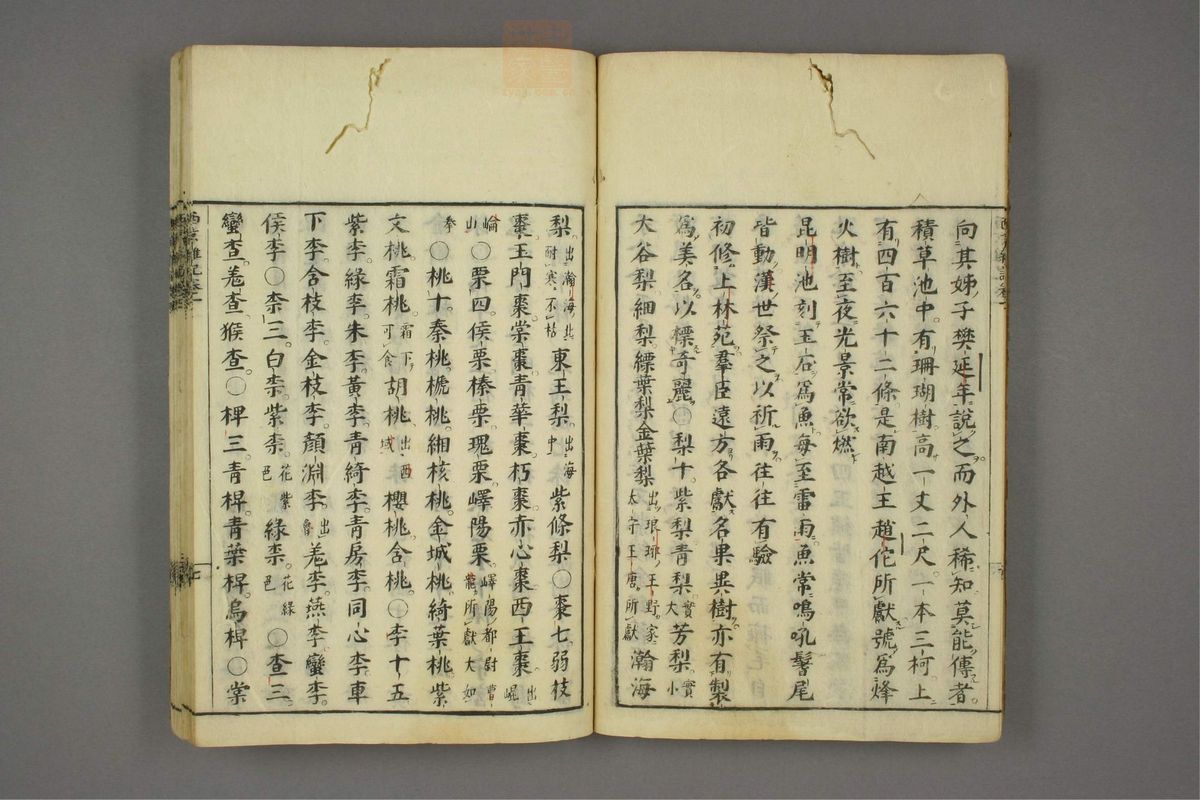 向其姊子樊延年說之而外人稀知莫能傳者
積草池中有珊瑚樹高一丈二尺一本三柯上
有四百六十二條是南越王趙佗所獻號爲烽
火樹至夜光景常欲燃
昆明池刻玉石爲魚每至雷雨魚常鳴吼鬐尾
皆動漢世祭之以祈雨往往有驗
初修上林苑羣臣遠方各獻名果異樹亦有製
爲美名以標奇麗〇梨十紫梨青梨實大芳梨實小
大谷梨細梨縹葉梨金葉梨出琅琊王野家太守王唐所獻瀚海
梨出瀚海北耐寒不枯東王梨出海中紫條梨〇棗七弱枝
棗玉門棗棠棗青華棗朽棗赤心棗西王棗出崐
崘山〇栗四侯栗榛栗瑰栗嶧陽栗嶧陽都尉曹龍所獻大如
拳〇桃十秦桃榹桃緗核桃金城桃綺葉桃紫
文桃霜桃霜下可食胡桃出西域櫻桃含桃〇李十五
紫李綠李朱李黃李青綺李青房李同心李車
下李含枝李金枝李顏淵李出魯羌李燕李蠻李
侯李〇柰三白柰紫柰花紫色綠柰花綠色〇查三
蠻查羌查猴查〇椑三青椑青葉椑烏椑〇棠